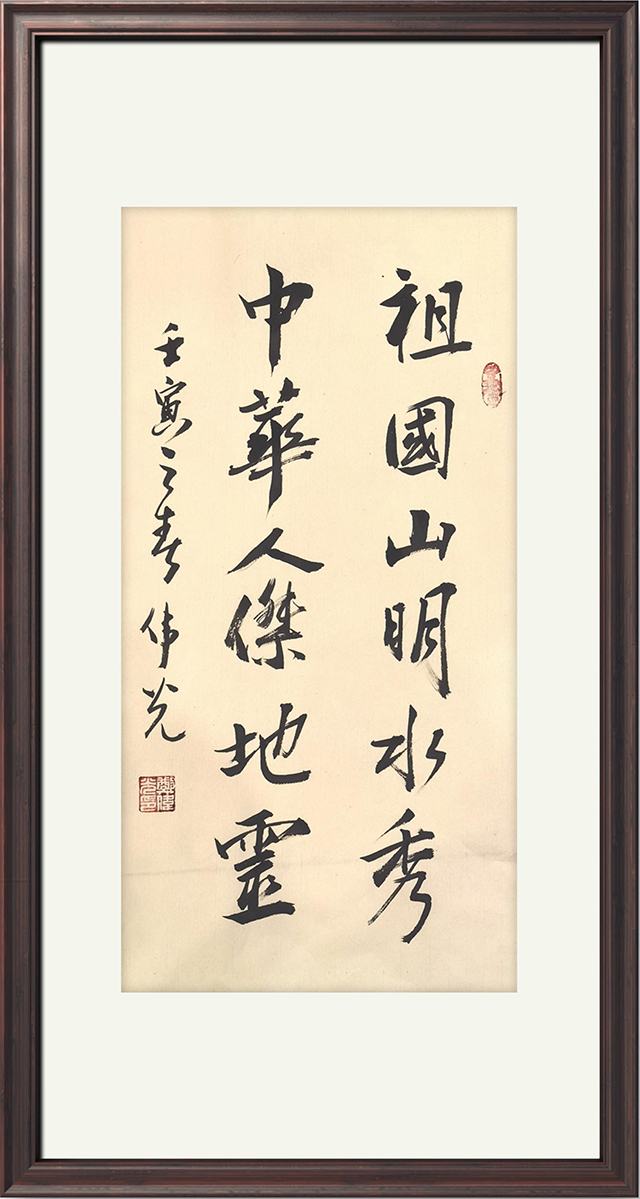 祖國山明水秀
中華人傑地靈
壬寅之春 伟光